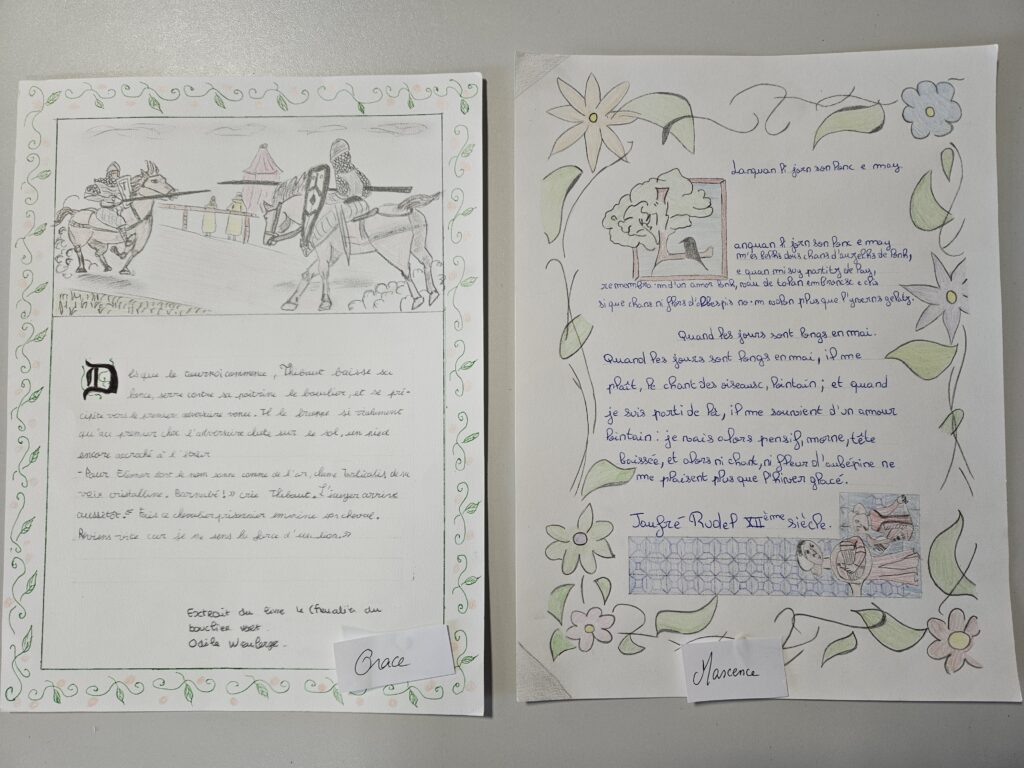 Dès que le tournoi commence, Thibaut baisse sa
lance, serre contre sa poitrine le bouclier, et se pré-
cipite vers le premier adversaire venu. Il le brusque si violement
qu'au premier choc l'adversaire chute sur le sol, un pied
encore accroché à l'étrier
- Pour Eléonor dont le nom sonne comme de l'or, clame de sa
voix cristalline. Barnabé ! » crie Thibaut. L'écuyer arrive
aussitôt. Fais ce chevalier prisonnier emmène son cheval.
Reviens vite car je me sens la force d'un lion »
Extrait du livre le Chevalier du
bouclier vert.
Odile Weulersse.
Grace
Lanquan li jorn son lonc e may
anquan li jorn son lonc e may
m'es belhs dous chans d'auzelhs de lonh,
e quan mi suy partitz de lay,
remembra·m d'un amor lonh, vau de talan embroncx e clis
si que chans ni flors d'albespis no·m valon plus que l'yverns gelatz.
Quand les jours sont longs en mai.
Quand les jours sont longs en mai, il me
plaît, le chant des oiseaux, lointain ; et quand
je suis parti de là, il me souvient d'un amour
lointain : je vais alors pensif, morne, tête
baissée, et alors ni chant, ni fleur d'aubépine ne
me plaisent plus que l'hiver glacé.
Jaufré Rudel XIIème siècle.
Maxence